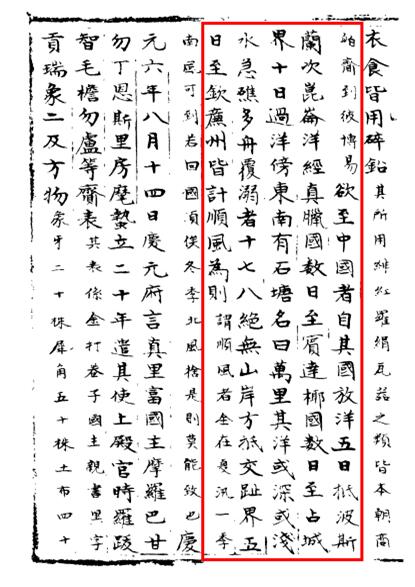 衣食皆用碎鉛其所用緋紅羅絹瓦器之類皆本朝商
舶齎到彼博易欲至中國者自其國放洋五日抵波斯
蘭次崑崙洋經真臘國數日至賓達椰國數日至占城
界十日過洋傍東南有石塘名曰萬里其洋或深或淺
水急礁多舟覆溺者十七八絕無山岸方抵交趾界五
日至欽廉州皆計順風為則謂順風者全在夏汛一季
南風可到若回國須俟冬季北風捨是則莫能致也慶
元六年八月十四日慶元府言真里富國主摩羅巴甘
勿丁恩斯里房麾蟄立二十年遣其使上殿官時羅跋
智毛檐勿盧等齎表其表係金打卷子國主親書黑字
貢瑞象二及方物象牙二十株犀角五十株土布四十